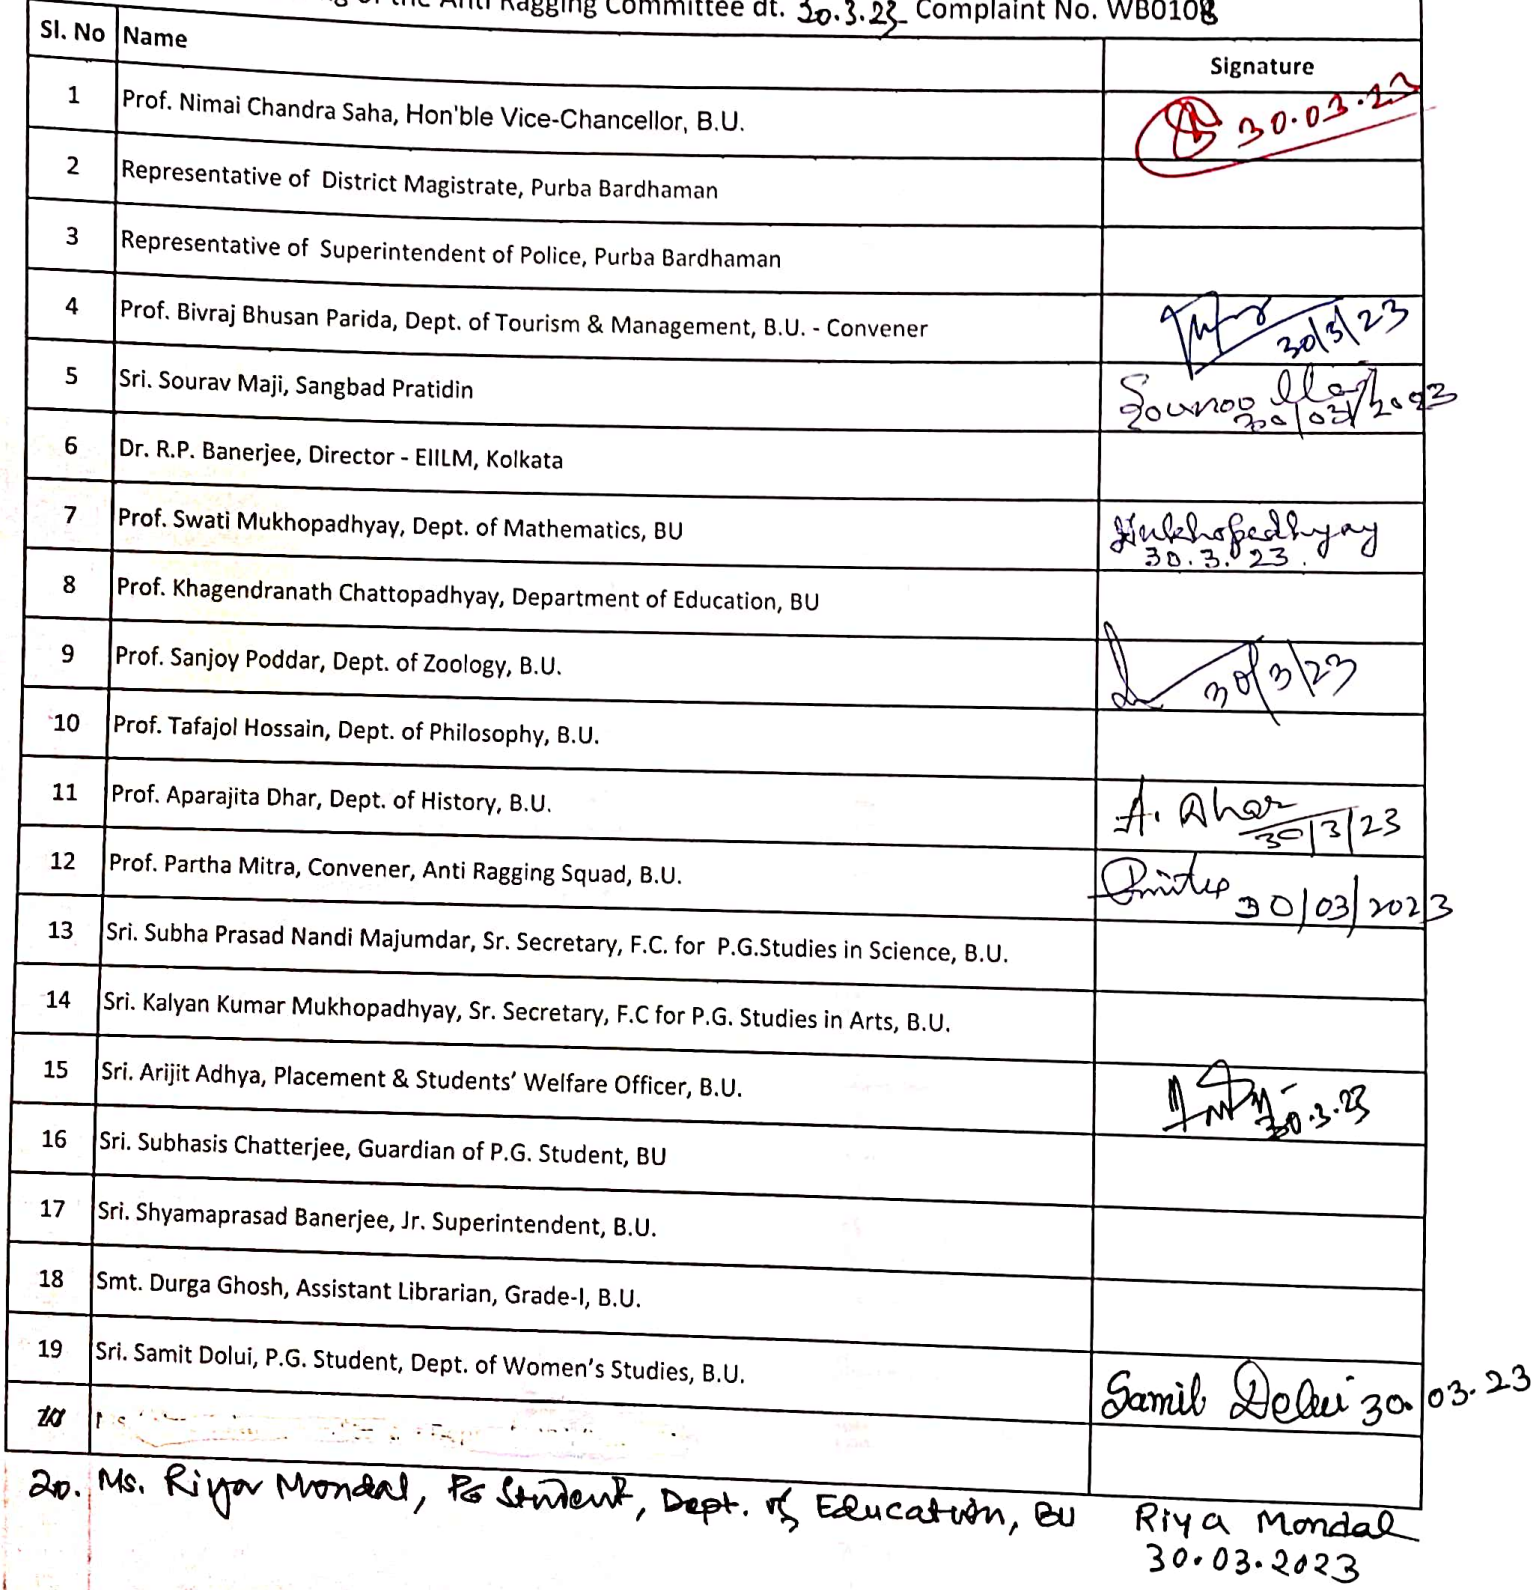 of the Anti Ragging Committee dt. 30.3.23 Complaint No. WB0108
Sl. No Name Signature
1 Prof. Nimai Chandra Saha, Hon'ble Vice-Chancellor, B.U. 30.03.23
2 Representative of District Magistrate, Purba Bardhaman
3 Representative of Superintendent of Police, Purba Bardhaman
4 Prof. Bivraj Bhusan Parida, Dept. of Tourism & Management, B.U. - Convener 30/3/23
5 Sri. Sourav Maji, Sangbad Pratidin 30/03/2023
6 Dr. R.P. Banerjee, Director - EIILM, Kolkata
7 Prof. Swati Mukhopadhyay, Dept. of Mathematics, BU Mukhopadhyay
30.3.23.
8 Prof. Khagendranath Chattopadhyay, Department of Education, BU
9 Prof. Sanjoy Poddar, Dept. of Zoology, B.U. 30/3/23
10 Prof. Tafajol Hossain, Dept. of Philosophy, B.U.
11 Prof. Aparajita Dhar, Dept. of History, B.U. A. Dhar
30/3/23
12 Prof. Partha Mitra, Convener, Anti Ragging Squad, B.U. 30/03/2023
13 Sri. Subha Prasad Nandi Majumdar, Sr. Secretary, F.C. for P.G.Studies in Science, B.U.
14 Sri. Kalyan Kumar Mukhopadhyay, Sr. Secretary, F.C for P.G. Studies in Arts, B.U.
15 Sri. Arijit Adhya, Placement & Students’ Welfare Officer, B.U. 30.3.23
16 Sri. Subhasis Chatterjee, Guardian of P.G. Student, BU
17 Sri. Shyamaprasad Banerjee, Jr. Superintendent, B.U.
18 Smt. Durga Ghosh, Assistant Librarian, Grade-I, B.U.
19 Sri. Samit Dolui, P.G. Student, Dept. of Women’s Studies, B.U. Samit Dolui 30.03.23
20. Ms. Riya Mondal, PG Student, Dept. of Education, BU Riya Mondal
30.03.2023